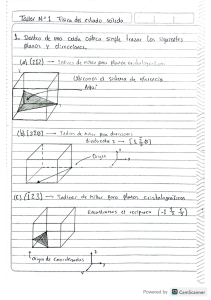 Taller N°1 Física del estado sólido
1. Dentro de una celda cúbica simple trazar los siguientes
planos y direcciones.
(a) (212) → Indices de miller para planos cristalográficos
Ubicamos el sistema de referencia
Aquí
(b) → Indices de miller para direcciones
Origen
(c) → Indices de miller para planos cristalográficos
Encontramos el recíproco
Origen de coordenadas
Powered by CS CamScanner